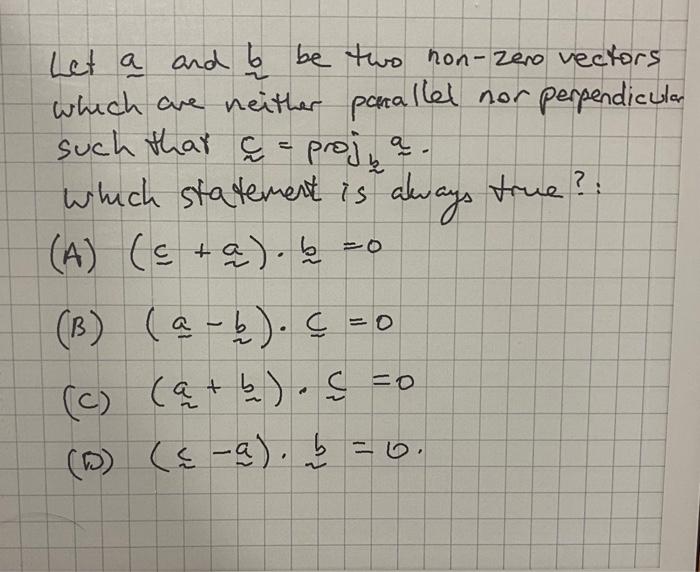 Let a and b be two non-zero vectors
which are neither parallel nor perpendicular
such that c = proj_b a.
Which statement is always true?:
(A) (c + a). b = 0
(B) (a - b). c = 0
(C) (a + b). c = 0
(D) (c - a). b = 0.